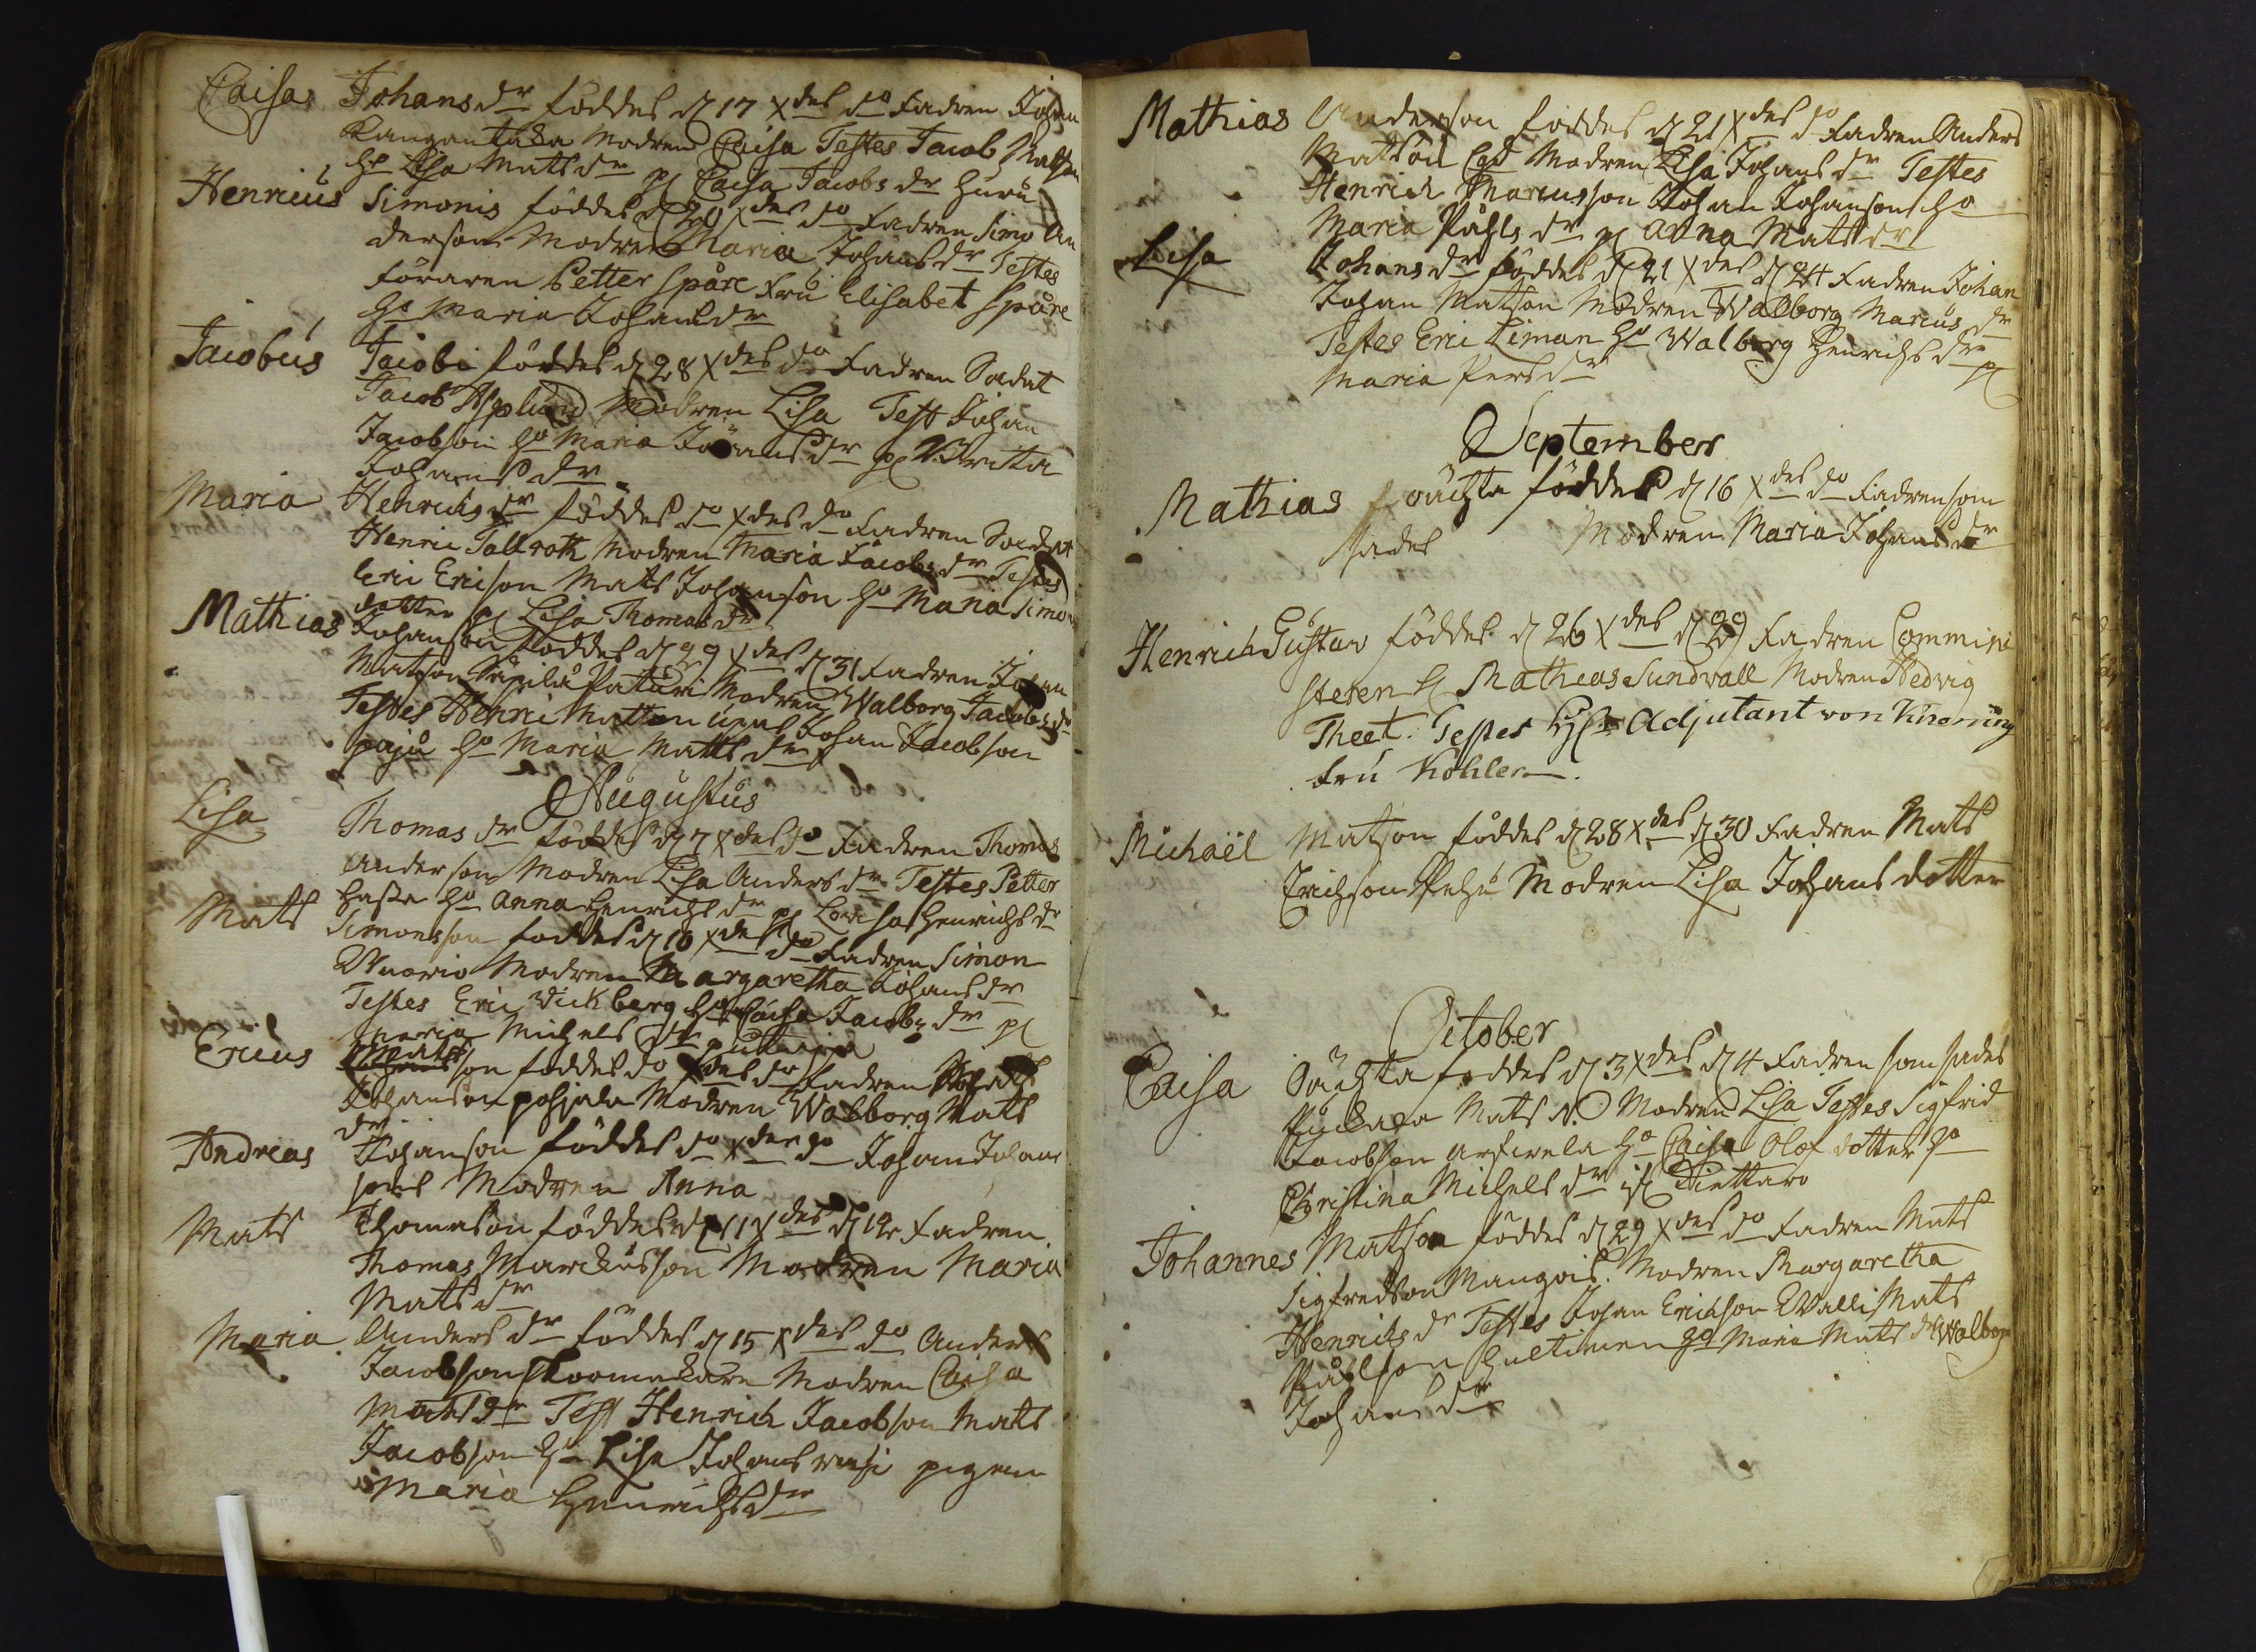 Caisa Johans dr föddes d 17 Xdes do Fadren Johan
Kangantaka Modren Caisa Testes Jacob Matson
ho Lisa Mats dr pl Caisa Jacobs dr
Henricus Simonis föddes d 20 Xdes do Fadren Simo An
derson Modren Maria Johans dr Testes
föraren Petter Spåre fru Elisabet Spåre
ho Maria Johans dr
Jacobus Jacobi föddes d 28 Xdes do Fadren Soldat
Jacob Asplund Modren Lisa Test Johan
Jacobson ho Maria Johans dr pl Brita
Johans dr
Maria Henrichs dr föddes do Xdes do Fadren Soldat
Henric Tallroth Modren Maria Jacobs dr Testes
Eric Ericson Mats Johanson ho Maria Simons
dotter pl Lisa Thomas dr
Mathias Johanson föddes d 29 Xdes d 31 Fadren Johan
Matson Modren Walborg Jacobs dr
Testes Henric Matson Johan Jacobson
paju ho Maria Matts dr
Augustus
Lisa Thomas dr föddes d 7 Xdes do Fadren Thomas
Anderson Modren Lisa Anders dr Testes Petter
Hasta ho Anna Henrichs dr pl Lovisa Henrichs dr
Mats Simonsson föddes d 10 Xdes do Fadren Simon
Wuorio Modren Margaretha Johans dr
Testes Eric Wickberg ho Caisa Jacobs dr pl
Maria Michels dr
Ericus Matsson föddes do Xdes do Fadren
Johanson pohjala Modren Walborg Mats
dr
Andreas Johanson föddes do Xdes do Johan Johans
son Modren Anna
Mats Thomason föddes d 11 Xdes d 12 Fadren
Thomas Marckusson Modren Maria
Mats dr
Maria Anders dr föddes d 15 Xdes do Anders
Jacobson Modren Caisa
Mats dr Test Henrich Jacobson Mats
Jacobson ho Lisa Johans pigan
Maria Henrichs dr
Mathias Anderson föddes d 21 Xdes do Fadren Anders
Mattson Modren Lisa Johans dr Testes
Henrich Marcusson Johan Johanson ho
Maria Påhls dr pl Anna Mats dr
Lisa Johans dr föddes d 21 Xdes d 24 Fadren Johan
Johan Matson Modren Walborg Marcus dr
Testes Eric Liman ho Walborg Henrichs dr pl
Maria Pers dr
September
Mathias oächta föddes d 16 Xdes do Fadren som
sades Modren Maria Johans dr
Henrich Gustav föddes d 26 Xdes d 29 Fadren Commini
steren H Mathias Sundvall Modren Hedvig
Theet. Testes Adjutant von Knorring
fru Köhler
Michaël Matson föddes d 28 Xdes d 30 Fadren Mats
Erichson Pehu Modren Lisa Johans dotter
October
Caisa Oächta föddes d 3 Xdes d 4 Fadren som sades
Mats N. Modren Lisa Testes Sigfrid
Jacobson ho Caisa Olof dotter ho
Christina Michels dr
Johannes Matson föddes d 29 Xdes do Fadren Mats
Sigfredson Mangois. Modren Margaretha
Henrichs dr Testes Johan Erichson Walli Mats
Påhlson Hultinen ho Maria Mats dr Walborg
Johans dr